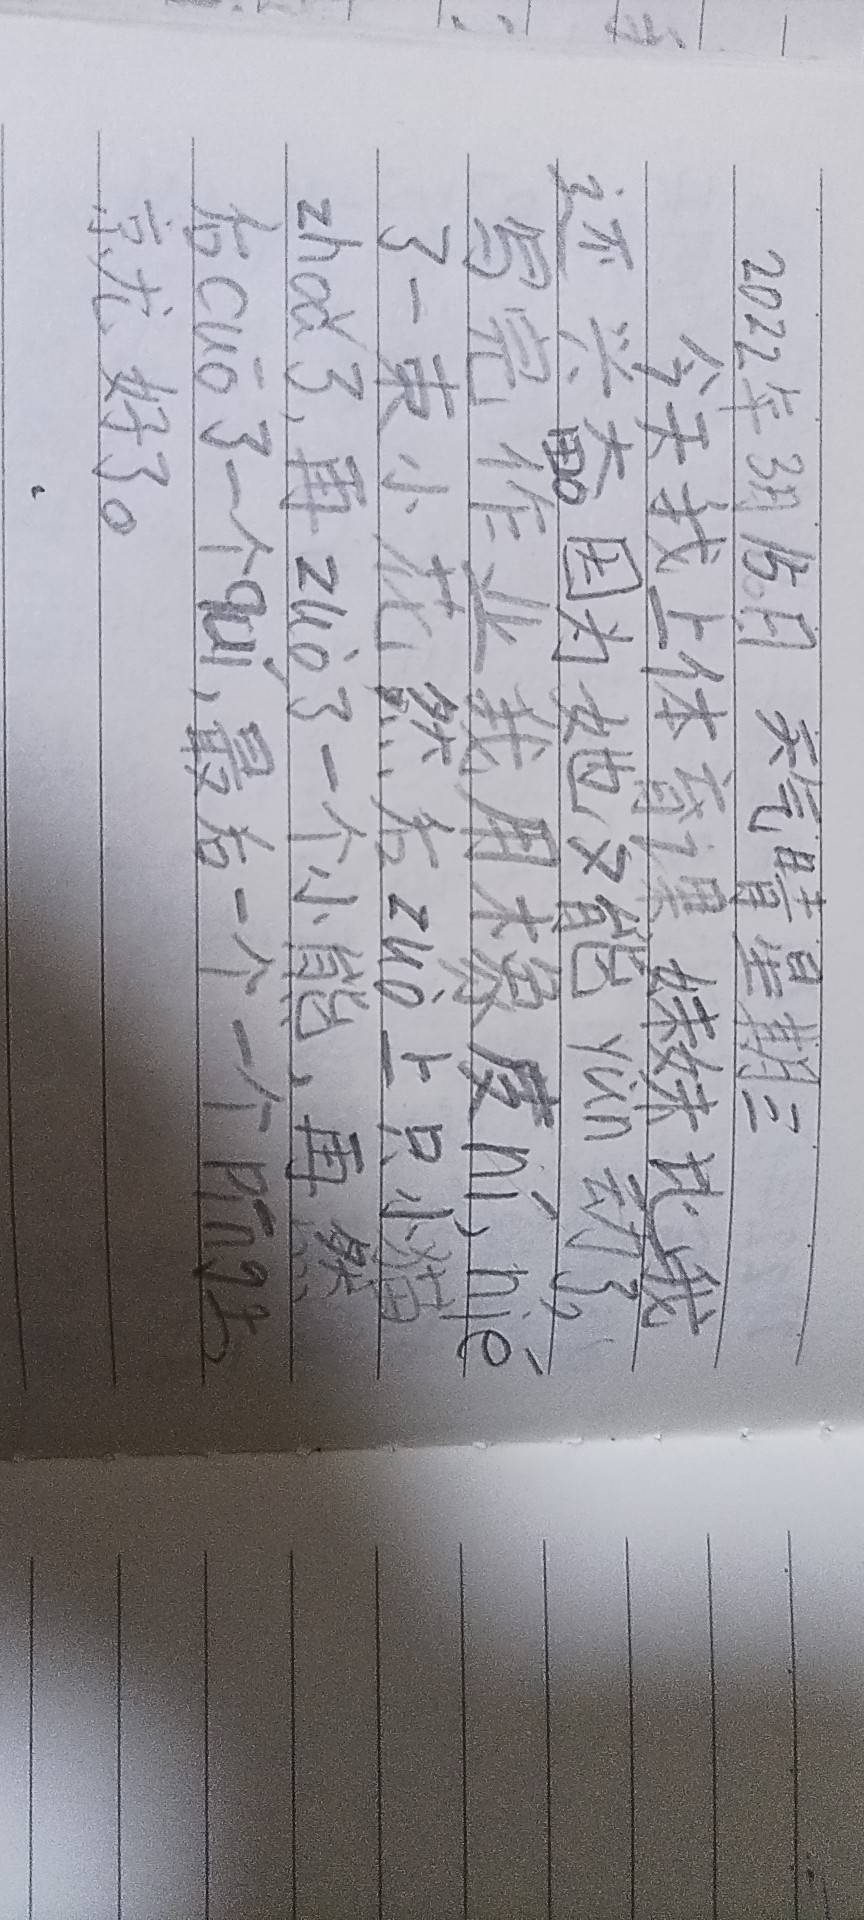 2022年3月15日 天气晴星期三
今天我上体育课 妹妹比我
还兴奋因为她又能yùn动了,
写完作业我用木衮度ní,niē
了一束小花,然右zuò上只小猫
zhǎ了,再zuò了一个小能,再然
右cuō了一个qiú,最右一个一个
京尤好了。